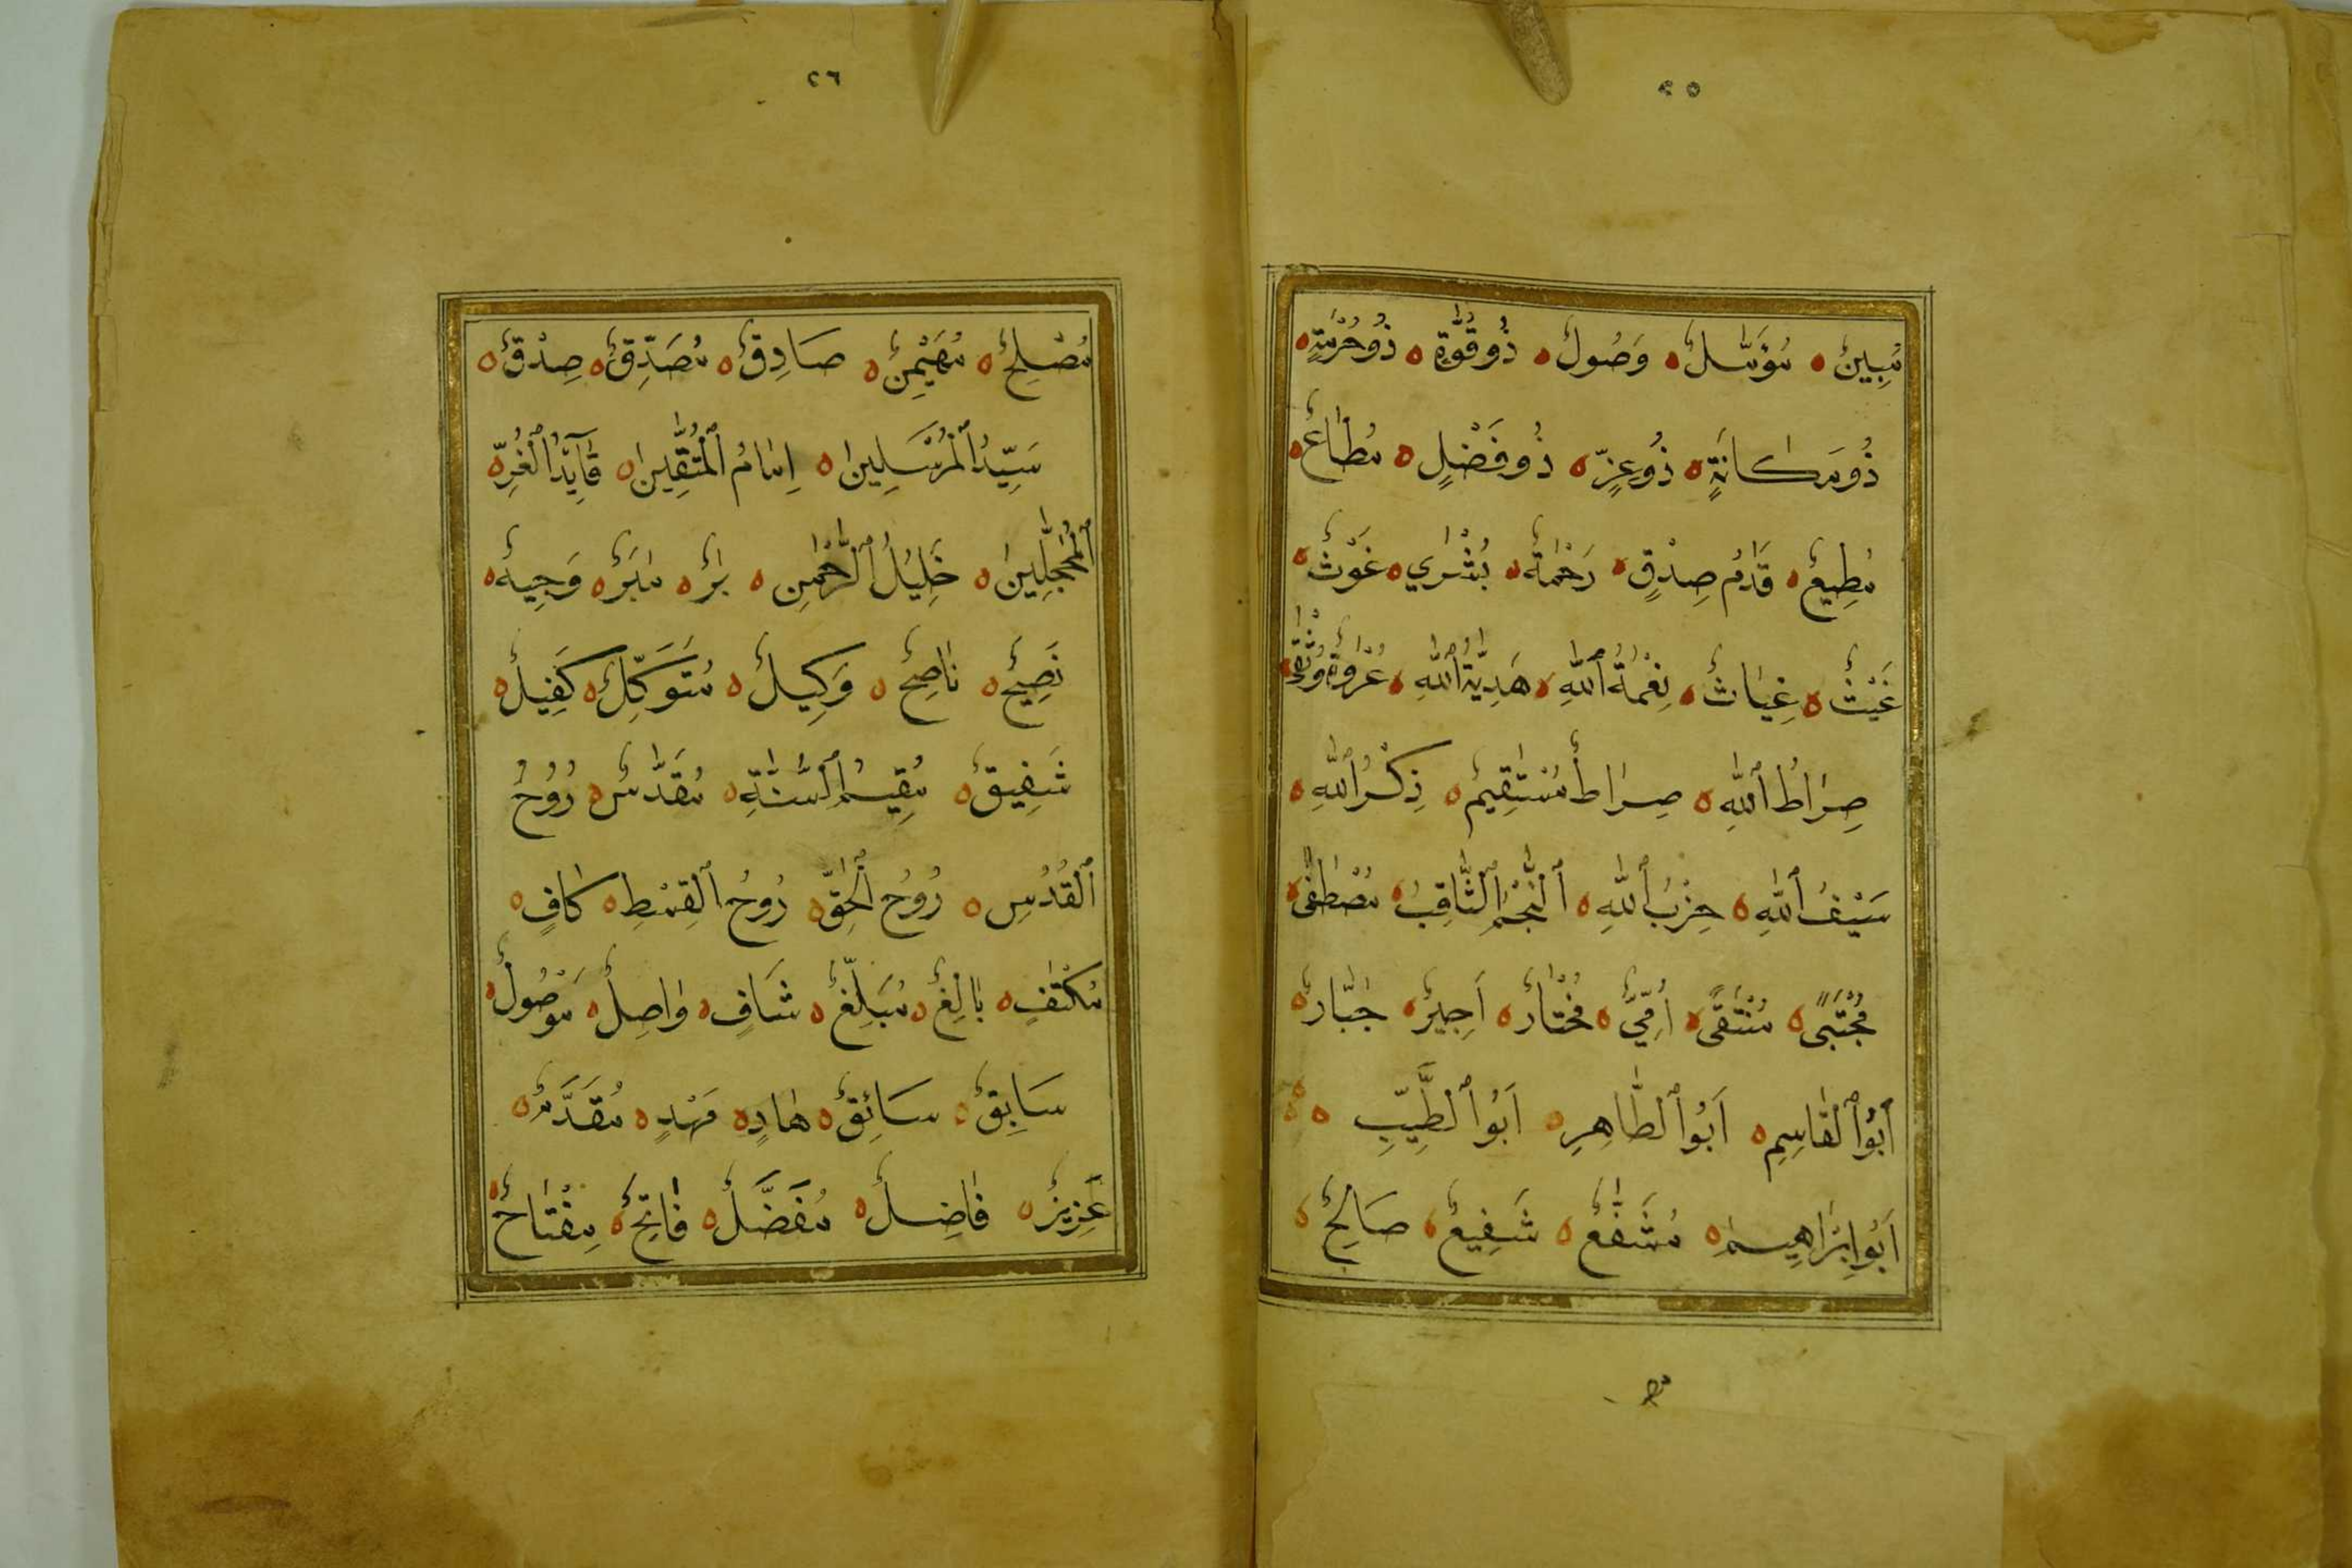 ٢٥
مُبِينٌ ۝ مُؤَمَّلٌ ۝ وَصُولٌ ۝ ذُو قُوَّةٍ ۝ ذُو حُرْمَةٍ ۝
ذُو مَكَانَةٍ ۝ ذُو عِزٍّ ۝ ذُو فَضْلٍ ۝ مُطَاعٌ ۝
مُطِيعٌ ۝ قَدَمُ صِدْقٍ ۝ رَحْمَةٌ ۝ بُشْرَي ۝ غَوْثٌ ۝
غَيْثٌ ۝ غِيَاثٌ ۝ نِعْمَةُ ٱللّٰهِ ۝ هَدِيَّةُ ٱللّٰهِ ۝ عُرْوَةٌ وُثْقَى ۝
صِرَاطُ ٱللّٰهِ ۝ صِرَاطٌ مُسْتَقِيمٌ ۝ ذِكْرُ ٱللّٰهِ ۝
سَيْفُ ٱللّٰهِ ۝ حِزْبُ ٱللّٰهِ ۝ ٱلنَّجْمُ ٱلثَّاقِبُ ۝ مُصْطَفًى ۝
مُجْتَبًى ۝ مُنْتَقًى ۝ أُمِّيٌّ ۝ مُخْتَارٌ ۝ اَجِيرٌ ۝ جَبَّارٌ ۝
اَبُو ٱلْقَاسِمِ ۝ اَبُو ٱلطَّاهِرِ ۝ اَبُو ٱلطَّيِّبِ ۝
اَبُو اِبْرَاهِيمَ ۝ مُشَفَّعٌ ۝ شَفِيعٌ ۝ صَالِحٌ ۝
٢٦
مُصْلِحٌ ۝ مُهَيْمِنٌ ۝ صَادِقٌ ۝ مُصَدِّقٌ ۝ صِدْقٌ ۝
سَيِّدُ ٱلْمُرْسَلِينَ ۝ اِمَامُ ٱلْمُتَّقِينَ ۝ قَآئِدُ ٱلْغُرِّ
ٱلْمُحَجَّلِينَ ۝ خَلِيلُ ٱلرَّحْمٰنِ ۝ بَرٌّ ۝ مَبَرٌّ ۝ وَجِيهٌ ۝
نَصِيحٌ ۝ نَاصِحٌ ۝ وَكِيلٌ ۝ مُتَوَكِّلٌ ۝ كَفِيلٌ ۝
شَفِيقٌ ۝ مُقِيمُ ٱلسُّنَّةِ ۝ مُقَدَّسٌ ۝ رُوحُ
ٱلْقُدُسِ ۝ رُوحُ ٱلْحَقِّ ۝ رُوحُ ٱلْقِسْطِ ۝ كَافٍ ۝
مُكْتَفٍ ۝ بَالِغٌ ۝ مُبَلِّغٌ ۝ شَافٍ ۝ وَاصِلٌ ۝ مَوْصُولٌ ۝
سَابِقٌ ۝ سَائِقٌ ۝ هَادٍ ۝ مُهْدٍ ۝ مُقَدَّمٌ ۝
عَزِيزٌ ۝ فَاضِلٌ ۝ مُفَضَّلٌ ۝ فَاتِحٌ ۝ مِفْتَاحٌ ۝